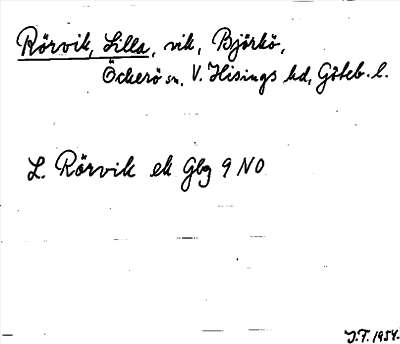 Rörvik, Lilla, vik, Björkö,
Öckerö sn, V. Hisings hd, Göteb. l.
L. Rörvik ek Gbg 9 NO
J.F. 1954.